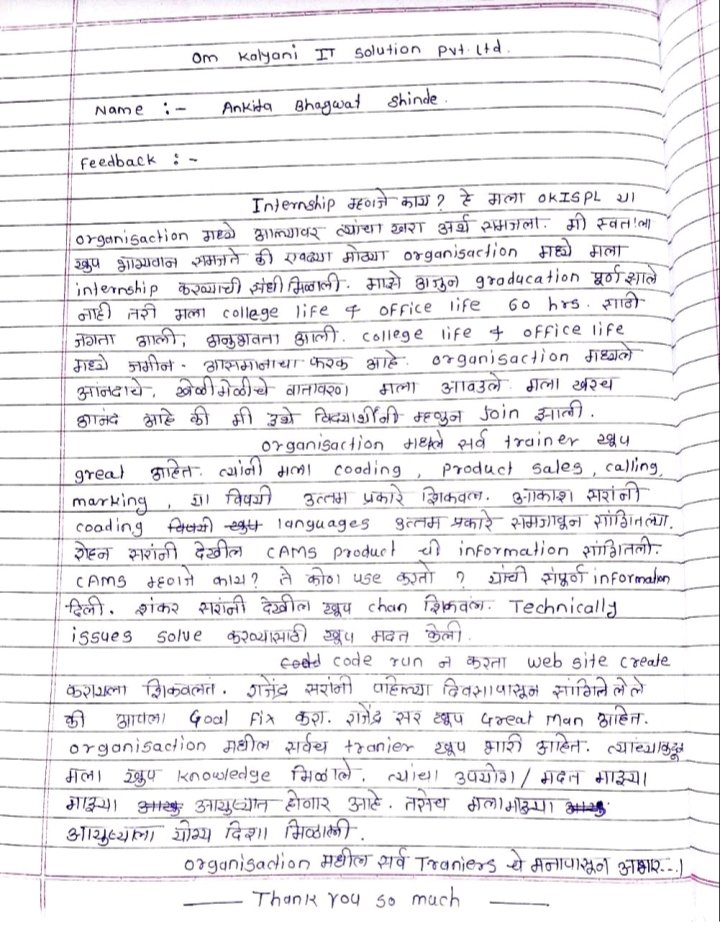 Om Kalyani IT Solution Pvt. Ltd.
Name :- Ankita Bhagwat Shinde.
Feedback :-
Internship म्हणजे काय? हे मला OKISPL या
organisaction मध्ये आल्यावर त्यांचा खरा अर्थ समजला. मी स्वतःला
खुप भाग्यवान समजते की एवढ्या मोठ्या organisaction मध्ये मला
internship करण्याची संधी मिळाली. माझे अजुन graducation पूर्ण झाले
नाही तरी मला college life & office life 60 hrs. साठी
जगता आली, अनुभवता आली. college life & office life
मध्ये जमीन - आसमानाचा फरक आहे. organisaction मधले
आनंदाचे, खेळीमेळीचे वातावरण मला आवडले. मला खरच
आनंद आहे की मी इथे विद्यार्थीनी म्हणून Join झाली.
organisaction मधले सर्व trainer खूप
great आहेत. त्यांनी मला cooding, product sales, calling,
marking, या विषयी उत्तम प्रकारे शिकवल. आकाश सरांनी
coading विषयी खुप languages उत्तम प्रकारे समजावून सांगितल्या.
रोहन सरांनी देखील CAMS product ची information सांगितली.
CAMS म्हणजे काय? ते कोण use करतो ? यांची संपूर्ण information
दिली. शंकर सरांनी देखील खूप chan शिकवल. Technically
issues solve करण्यासाठी खूप मदत केली.
code run न करता web site create
करायला शिकवलत. राजेंद्र सरांनी पहिल्या दिवसापासून सांगितलेले
की आपला Goal Fix करा. राजेंद्र सर खूप Great man आहेत.
organisaction मधील सर्वच tranier खूप भारी आहेत. त्यांच्याकडून
मला खुप knowledge मिळाले. त्यांचा उपयोग / मदत माझ्या
माझ्या आयुष्यात होणार आहे. तसेच मला माझ्या
आयुष्याला योग्य दिशा मिळाली.
organisaction मधील सर्व Traniers चे मनापासून आभार...!
Thank you so much